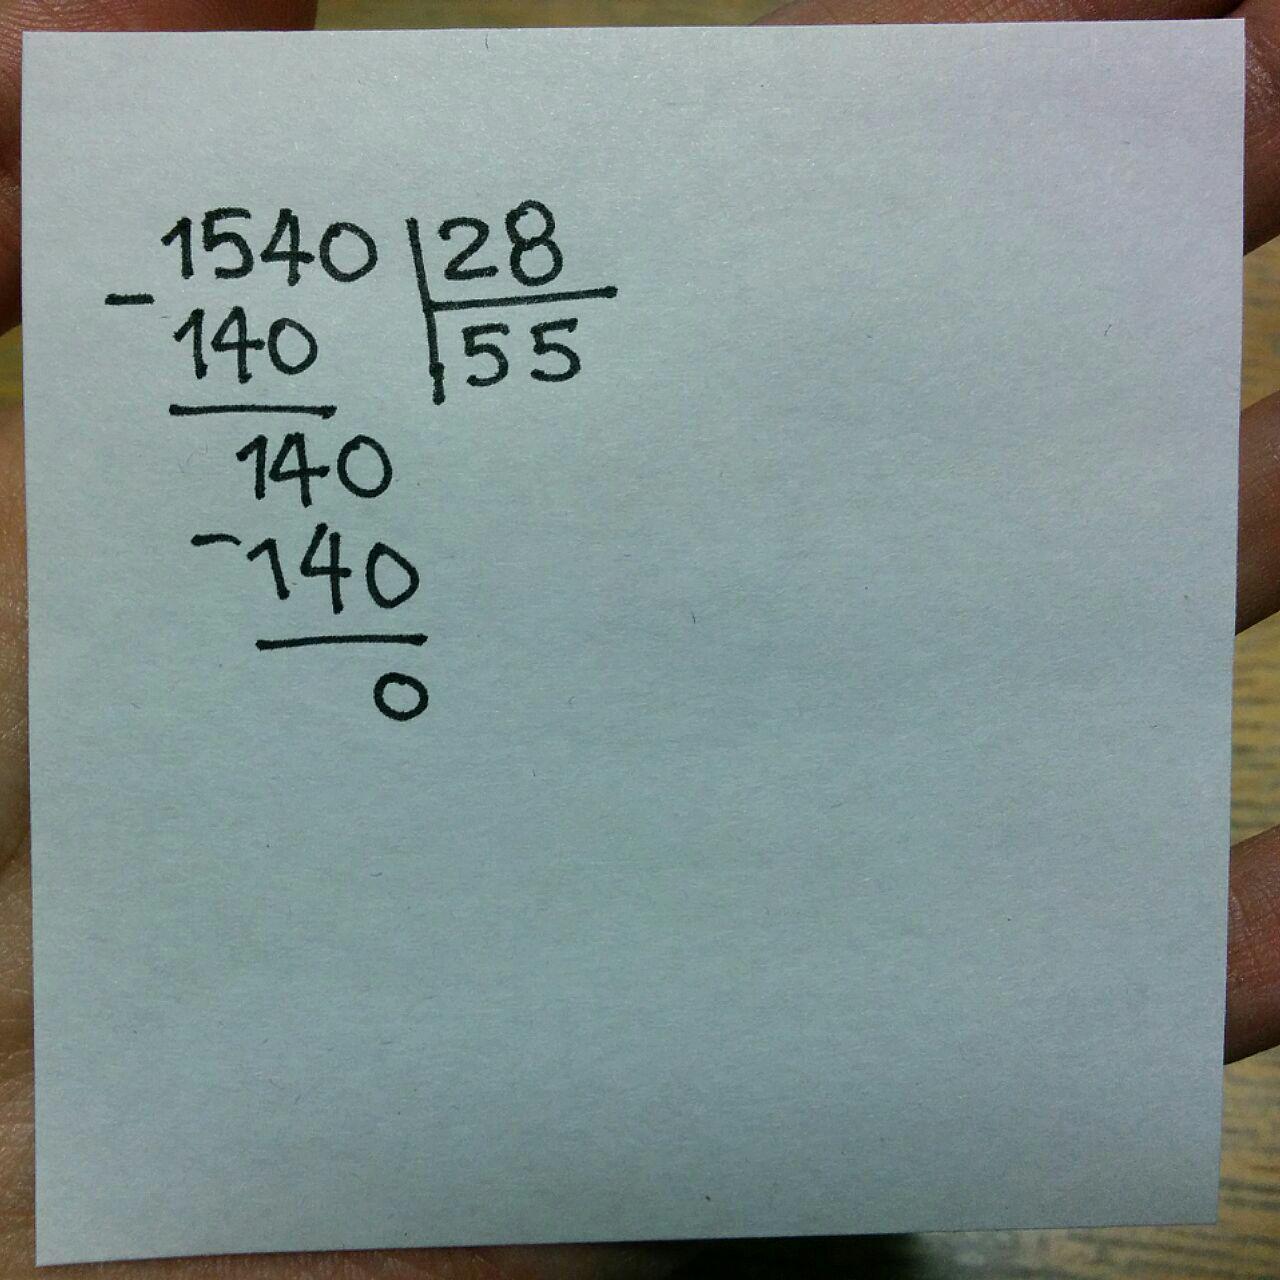 1540 28
- 140 55
140
- 140
0